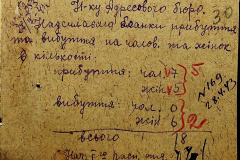 30
Н-ку Адресового бюро.
Надсилаємо бланки прибуття
та вибуття на часов. та жінок
в кількості:
прибуття: чол 7
жін 5
5
вибуття: чол. 0
жін 6
2
всього 18
№69
28.4.43